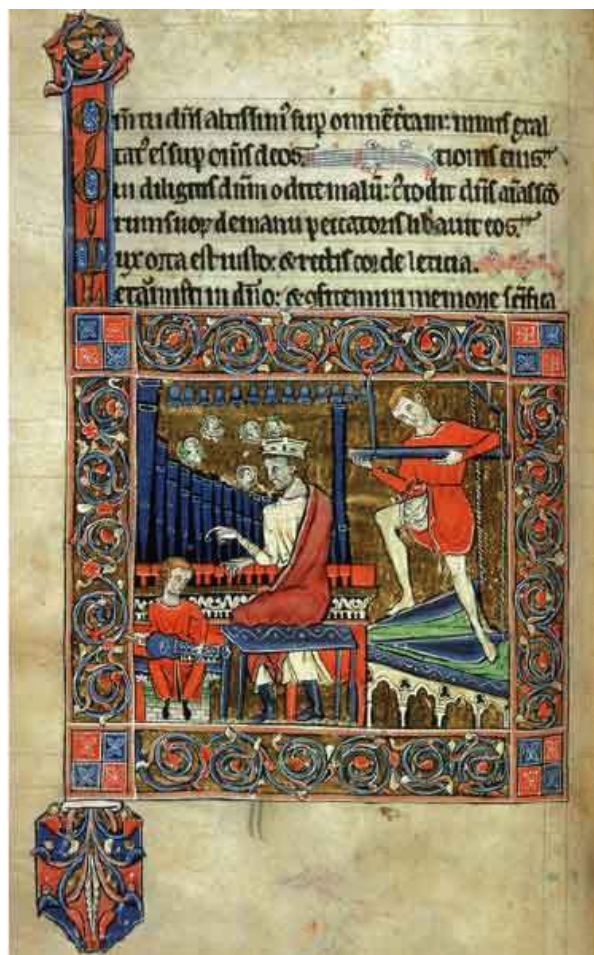 Qm̄ tu dn̄s altissimꝰ suꝑ omnē t̄ram: nimis exal
tatꝰ es suꝑ om̄s deos. tionis eius.
Qui diligitis dn̄m odite malū: c̄todit dn̄s aīas sc̄o
rum suoꝝ de manu peccatoris lib̄auit eos.
Lux orta est iusto: & rectis corde leticia.
Letamini iusti in dn̄o: & ꝯfitemini memorie sc̄ifica